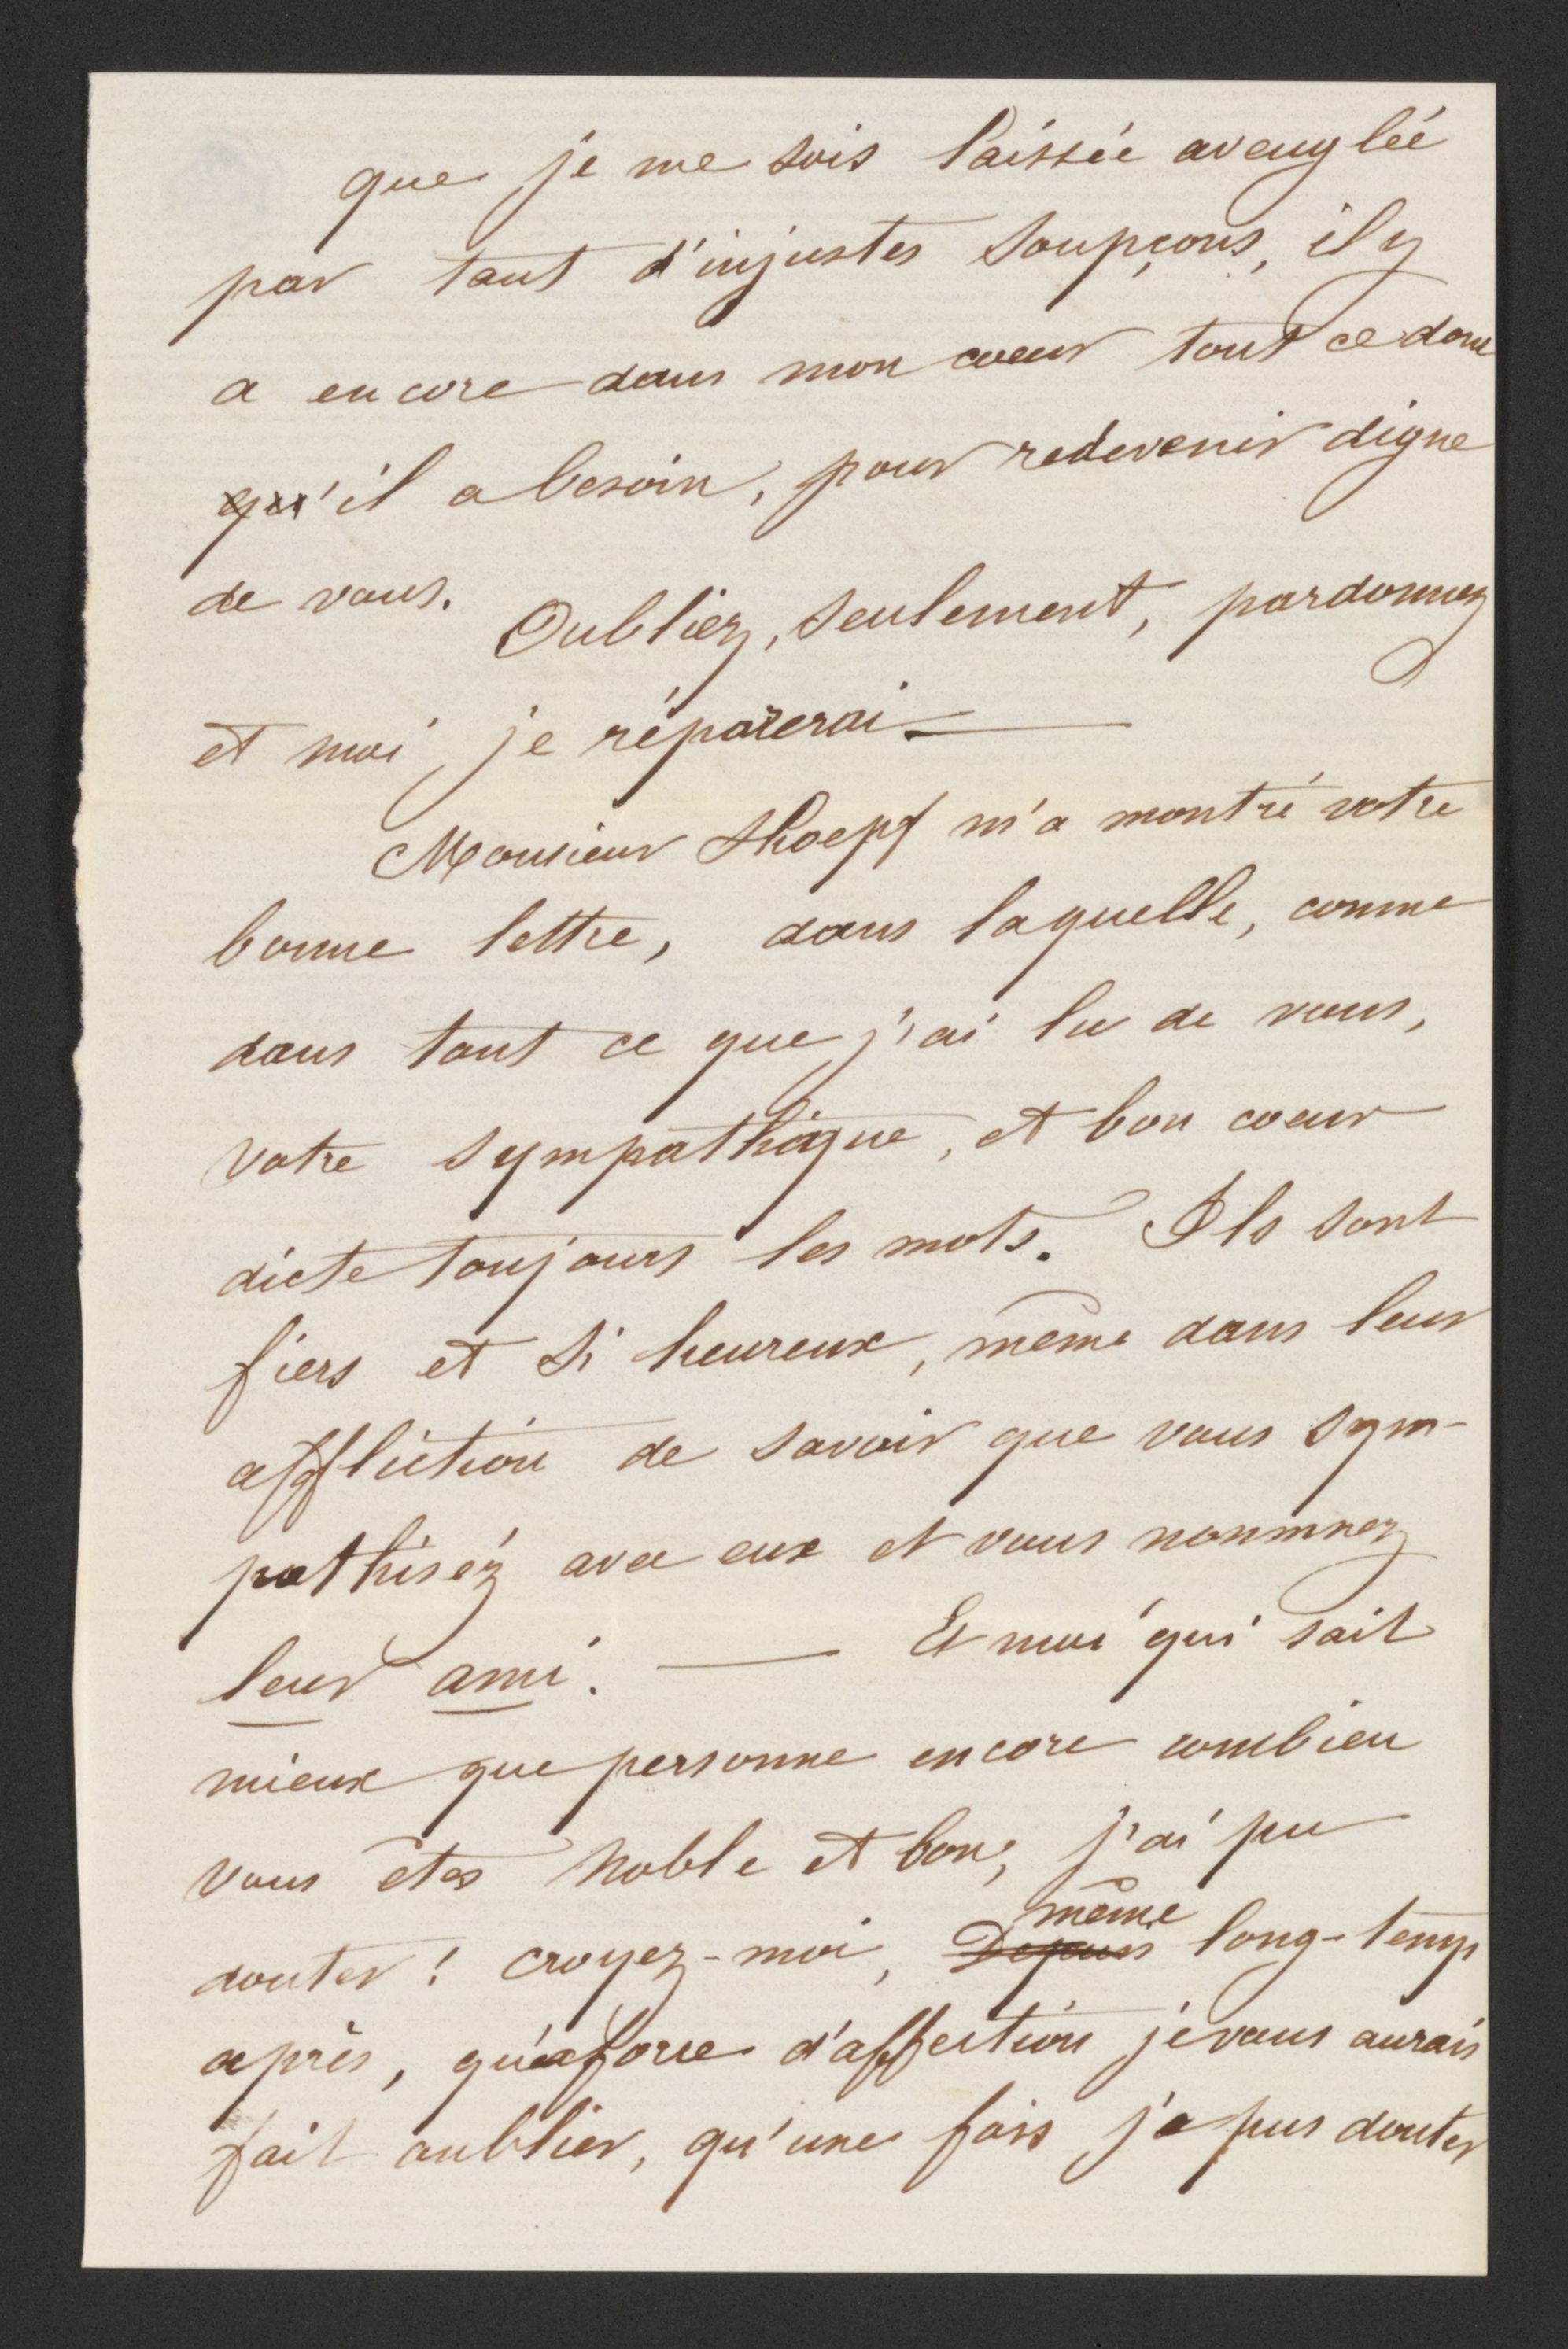 que je me sois laissée aveuglée
par tant d'injustes soupçons, il y
a encore dans mon coeur tout ce dont
qu'il a besoin, pour redevenir digne
de vous. Oubliez, seulement, pardonnez
et moi je réparerai —
Monsieur Shoepf m'a montré votre
bonne lettre, dans laquelle, comme
dans tout ce que j'ai lu de vous,
votre sympathique, et bon coeur
dicte toujours les mots. Ils sont
fiers et si heureux, même dans leur
affliction de savoir que vous sym-
pathiséz avec eux et vous nommez
leur ami. — Et moi qui sait
mieux que personne encore combien
vous êtes noble et bon, j'ai pu
douter! croyez-moi, Depuis même long-temps
après, qu'à force d'affection je vous aurais
fait oublier, qu'une fois j'a pus douter